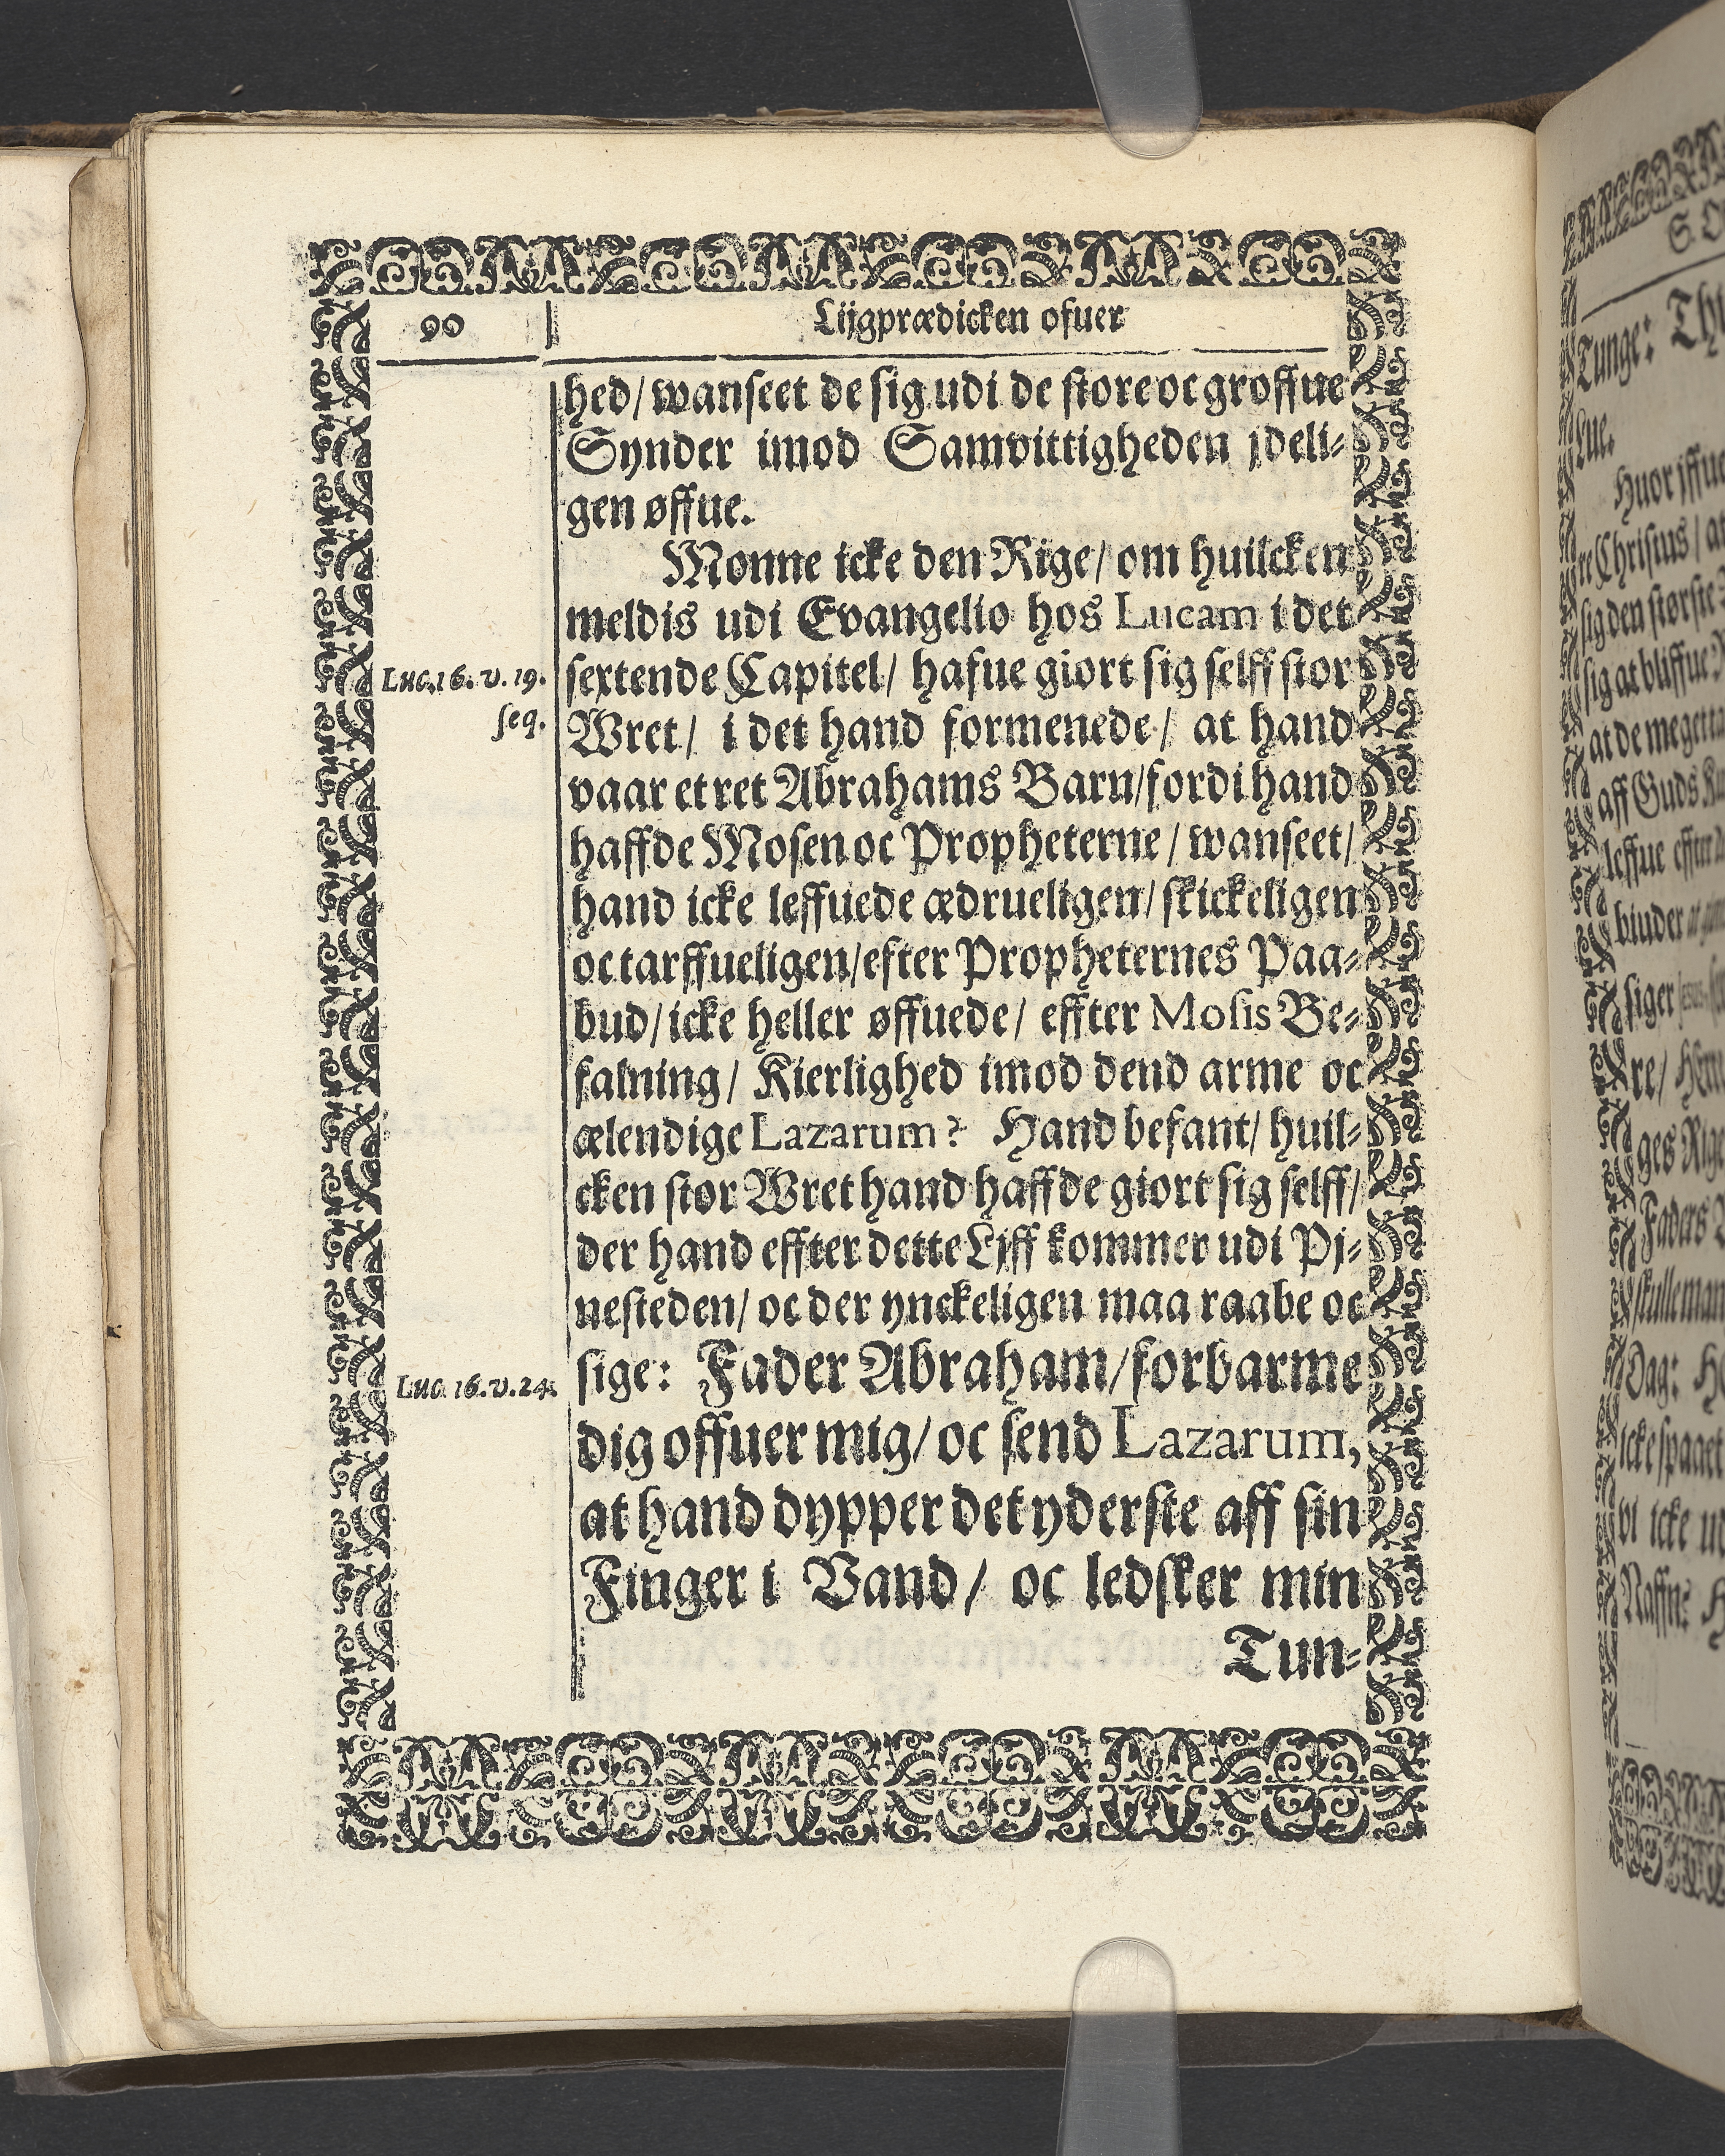 90
Lijgprædicken ofuer
hed/ wanseet de sig udi de store oc groffue
Synder imod Samvittigheden jdeli-
gen øffue.
Monne icke den Rige/ om huilcken
meldis udi Evangelio hos Lucam i det
sextende Capitel/ hafue giort sig selff stor
Wret/ i det hand formenede/ at hand
vaar et ret Abrahams Barn/ fordi hand
haffde Mosen oc Propheterne/ wanseet/
hand icke leffuede ædrueligen/ skickeligen
oc tarffueligen/ efter Propheternes Paa-
bud/ icke heller øffuede/ effter Mosis Be-
falning/ Kierlighed imod dend arme oc
ælendige Lazarum? Hand befant/ huil-
cken stor Wret hand haffde giort sig selff/
der hand effter dette Lijff kommer udi Pj-
nesteden/ oc der ynckeligen maa raabe oc
sige: Fader Abraham/ forbarme
dig offuer mig/ oc send Lazarum,
at hand dypper det yderste aff sin
Finger i Vand/ oc ledsker min
Tun-
Luc. 16. v. 19.
seq.
Luc. 16. v. 24.
Tunge:
siger
Dag:
vi icke